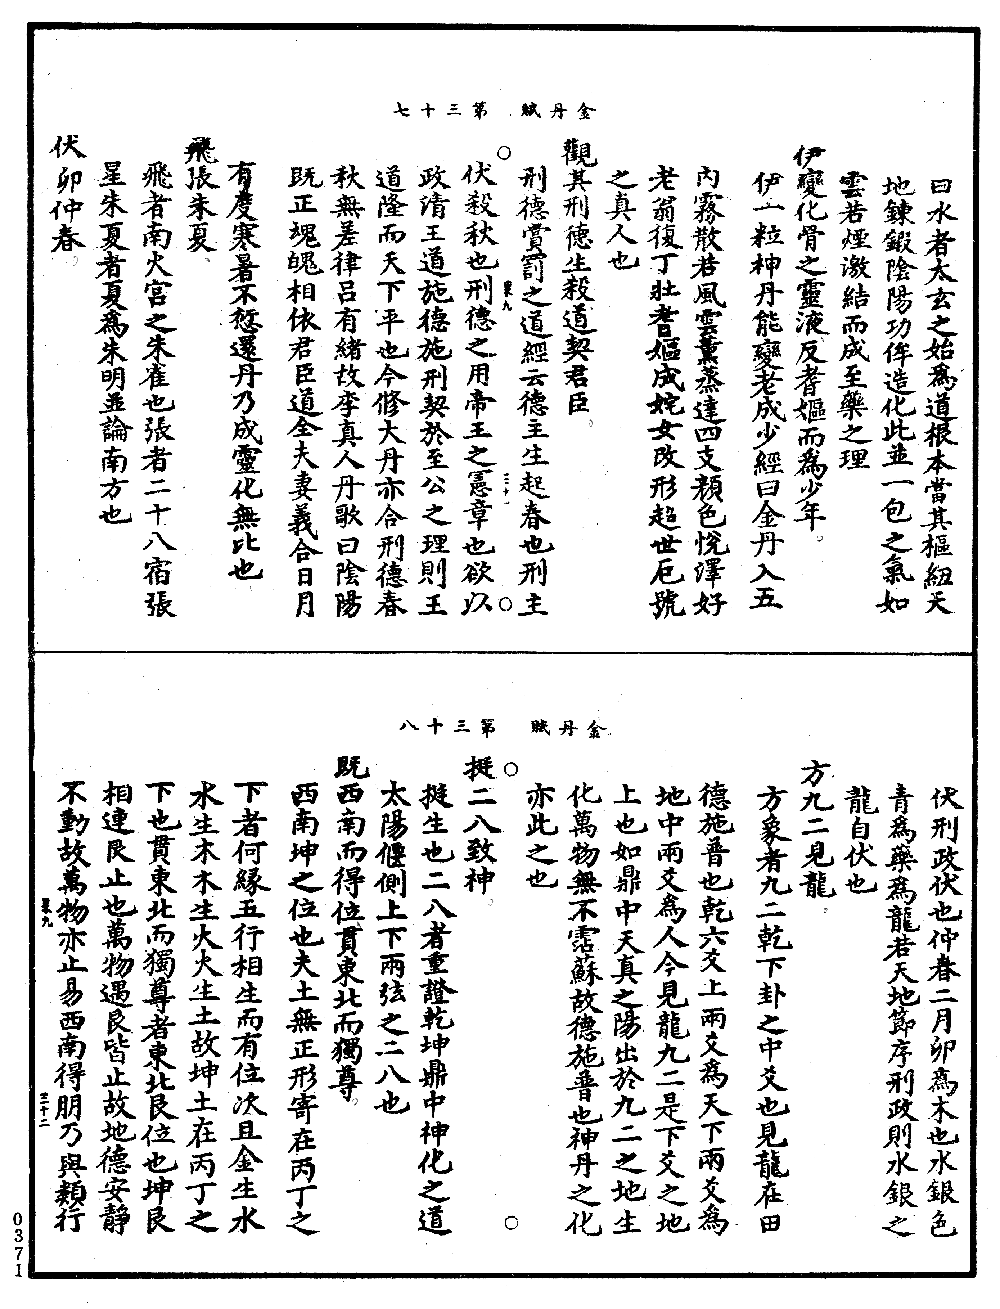 金丹賦　第三十七
曰水者太玄之始爲道根本當其樞紐天
地鍊鍛陰陽功侔造化此並一包之氣如
雲若煙激結而成至藥之理
伊變化骨之靈液反耆嫗而爲少年。
伊一粒神丹能變老成少經曰金丹入五
內霧散若風雲薰蒸達四支顏色悅澤好
老翁復丁壯耆嫗成姹女改形超世厄號
之真人也
觀其刑德生殺道契君臣。
刑德賞罰之道經云德主生起春也刑主
伏殺秋也刑德之用帝王之憲章也欲以
政清王道施德施刑契於至公之理則王
道隆而天下平也今修大丹亦合刑德春
秋無差律呂有緒故李真人丹歌曰陰陽
既正魂魄相依君臣道全夫妻義合日月
有度寒暑不愆還丹乃成靈化無比也
飛張朱夏。
飛者南火宮之朱雀也張者二十八宿張
星朱夏者夏爲朱明並論南方也
伏卯仲春。
金丹賦　第三十八
伏刑政伏也仲春二月卯爲木也水銀色
青爲藥爲龍若天地節序刑政則水銀之
龍自伏也
方九二見龍。
方象者九二乾下卦之中爻也見龍在田
德施普也乾六爻上兩爻爲天下兩爻爲
地中兩爻爲人今見龍九二是下爻之地
上也如鼎中天真之陽出於九二之地生
化萬物無不霑蘇故德施普也神丹之化
亦此之也
挺二八致神。
挺生也二八者重證乾坤鼎中神化之道
太陽偃側上下兩弦之二八也
既西南而得位貫東北而獨尊。
西南坤之位也夫土無正形寄在丙丁之
下者何緣五行相生而有位次且金生水
水生木木生火火生土故坤土在丙丁之
下也貫東北而獨尊者東北艮位也坤艮
相連艮止也萬物遇艮皆止故地德安靜
不動故萬物亦止易西南得朋乃與類行
0371